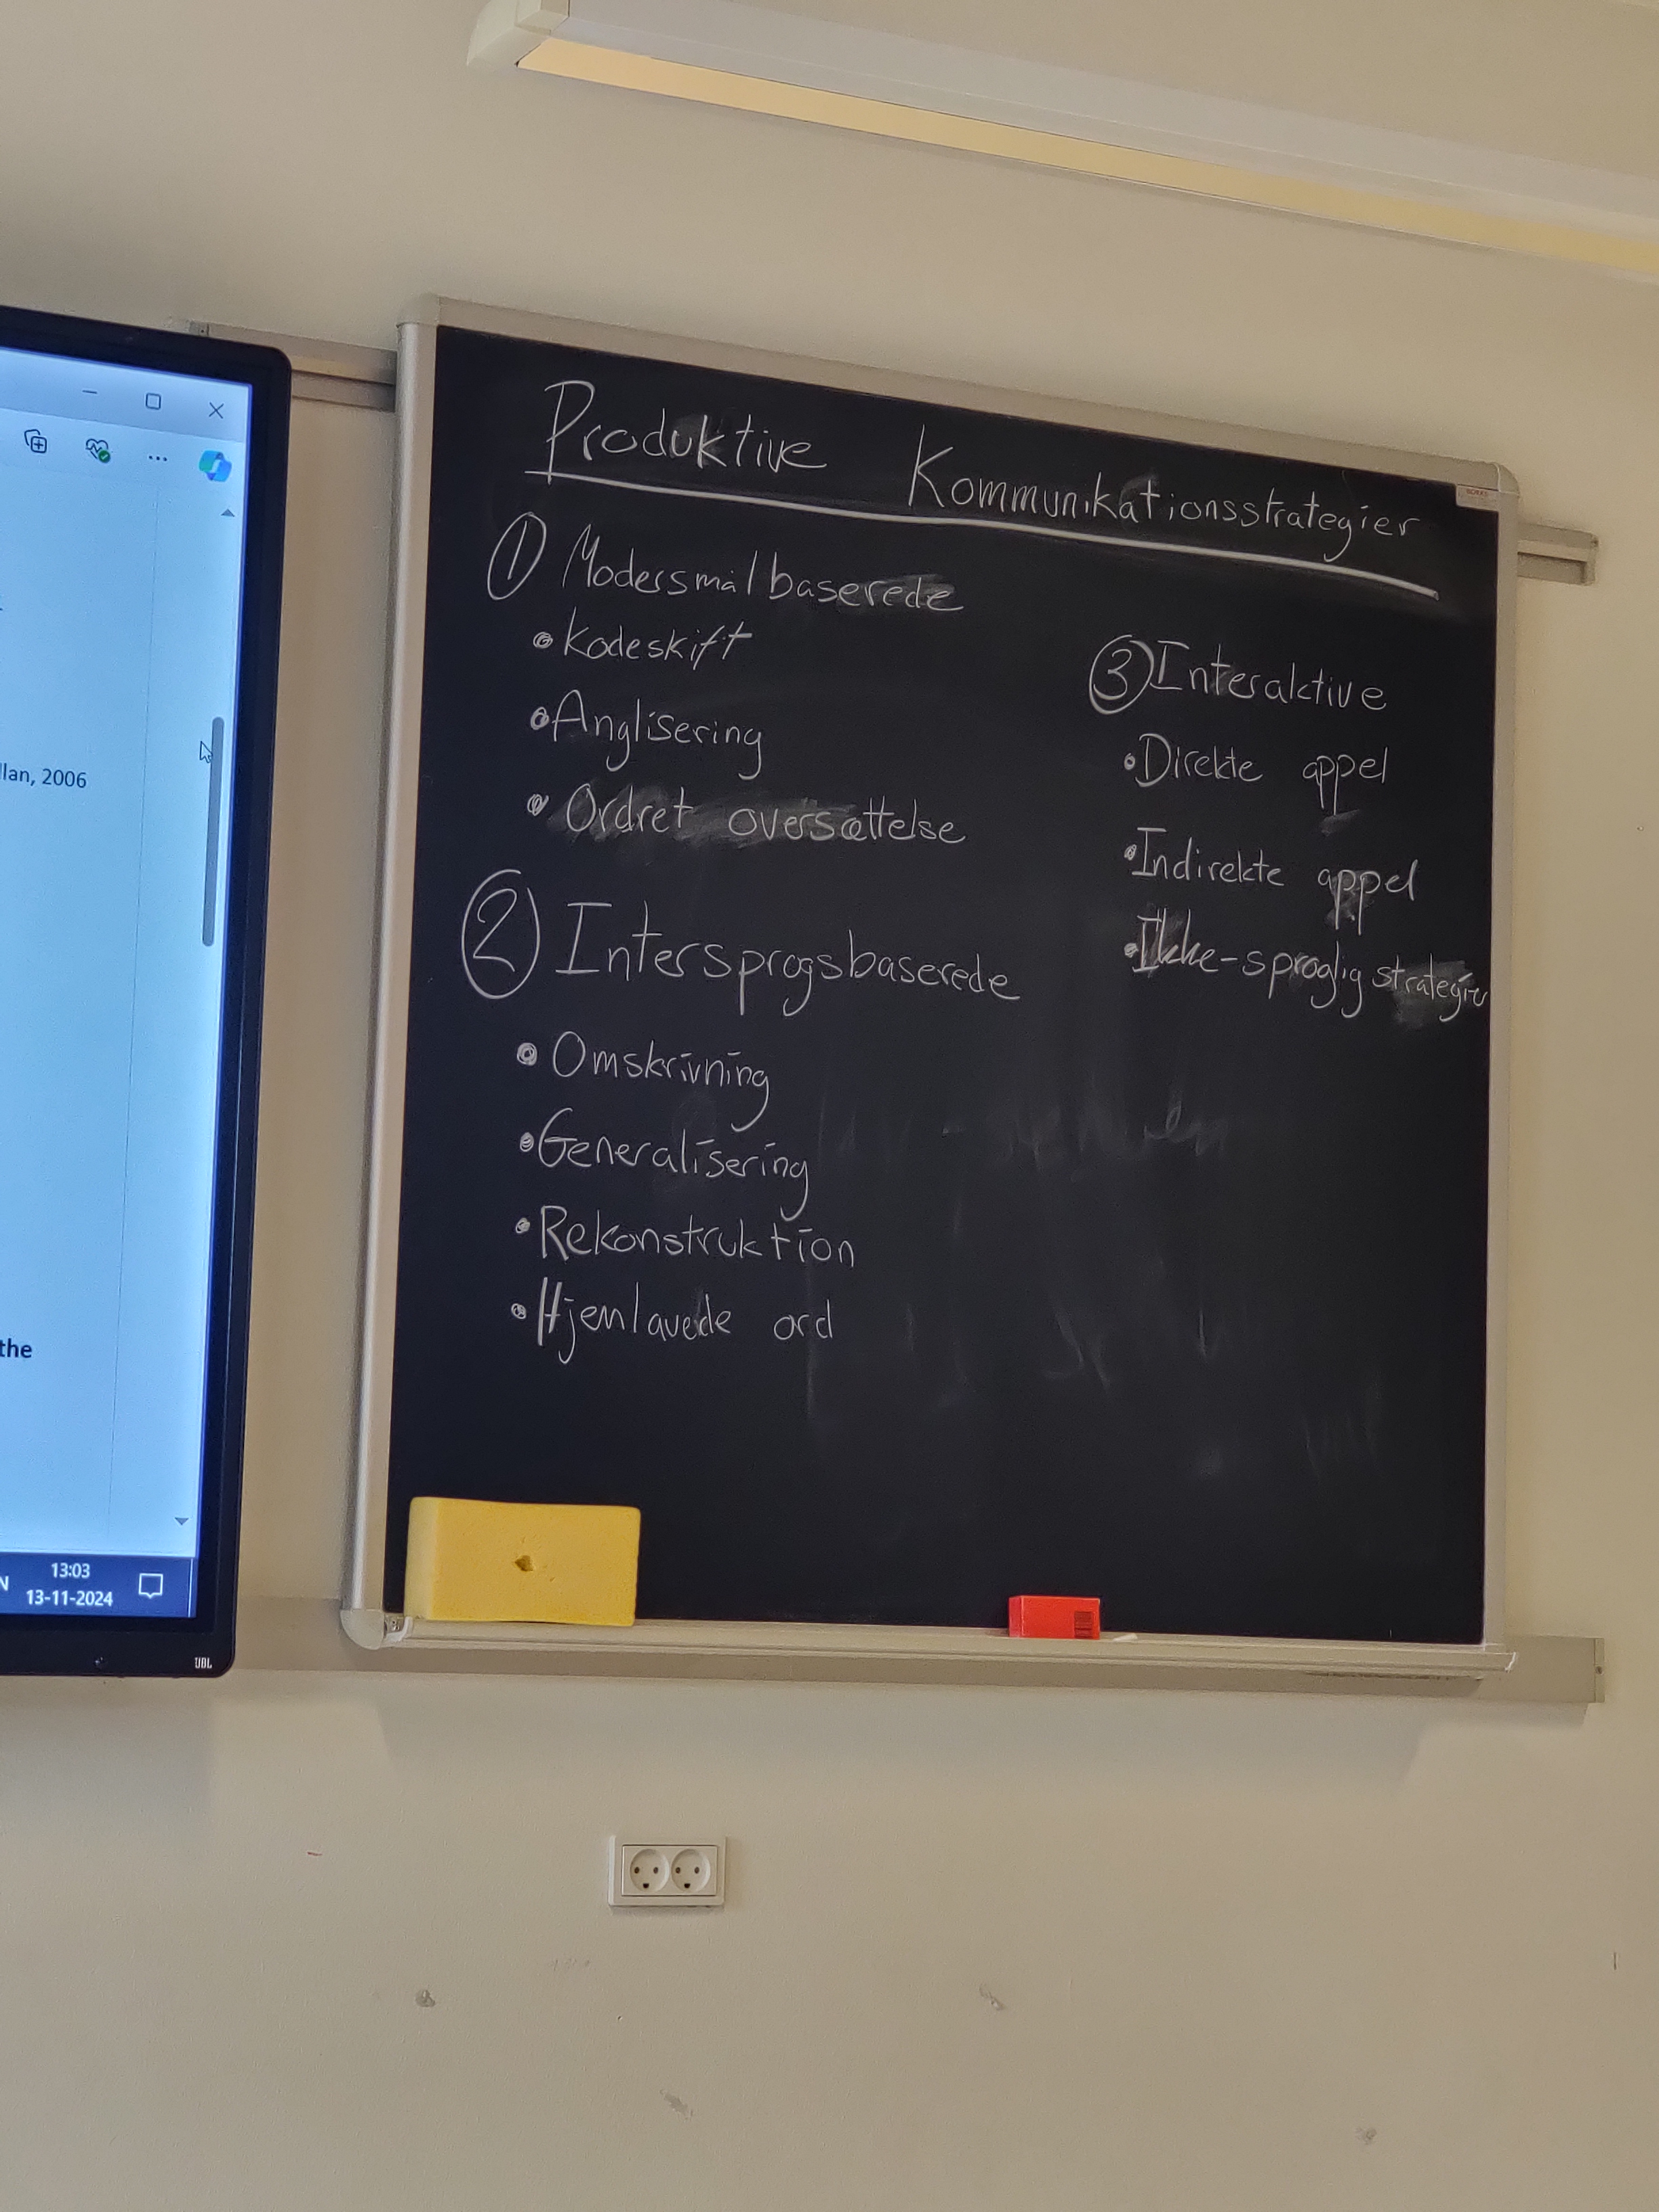 Produktive Kommunikationsstrategier
① Modersmålbaserede
• Kodeskift
• Anglisering
• Ordret oversættelse
② Intersprogsbaserede
• Omskrivning
• Generalisering
• Rekonstruktion
• Hjemlavede ord
③ Interaktive
• Direkte appel
• Indirekte appel
• Ikke-sproglig strategier
llan, 2006
the
N
13:03
13-11-2024